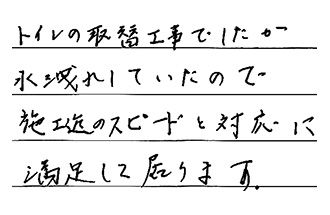 トイレの取替工事でしたが
水洩れしていたので
施工迄のスピードと対応に
満足して居ります。